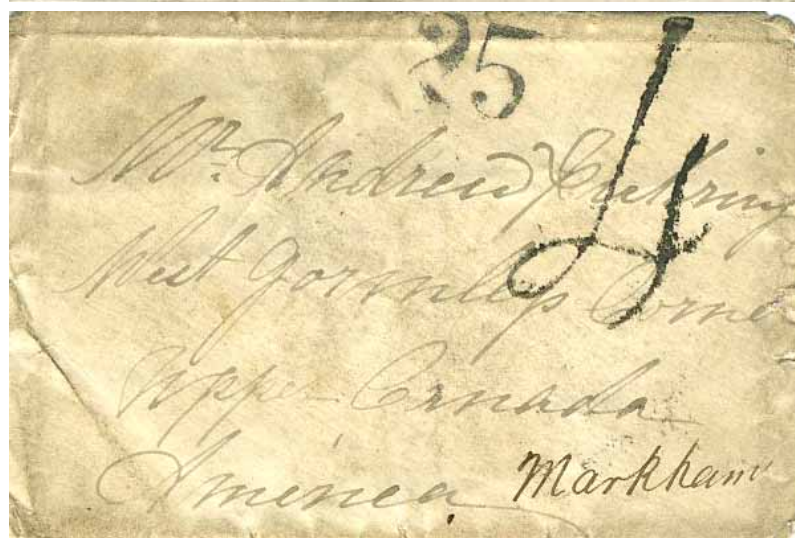 25 4
Mr. Andrew
West Gormleys Corner
Upper Canada
America Markham